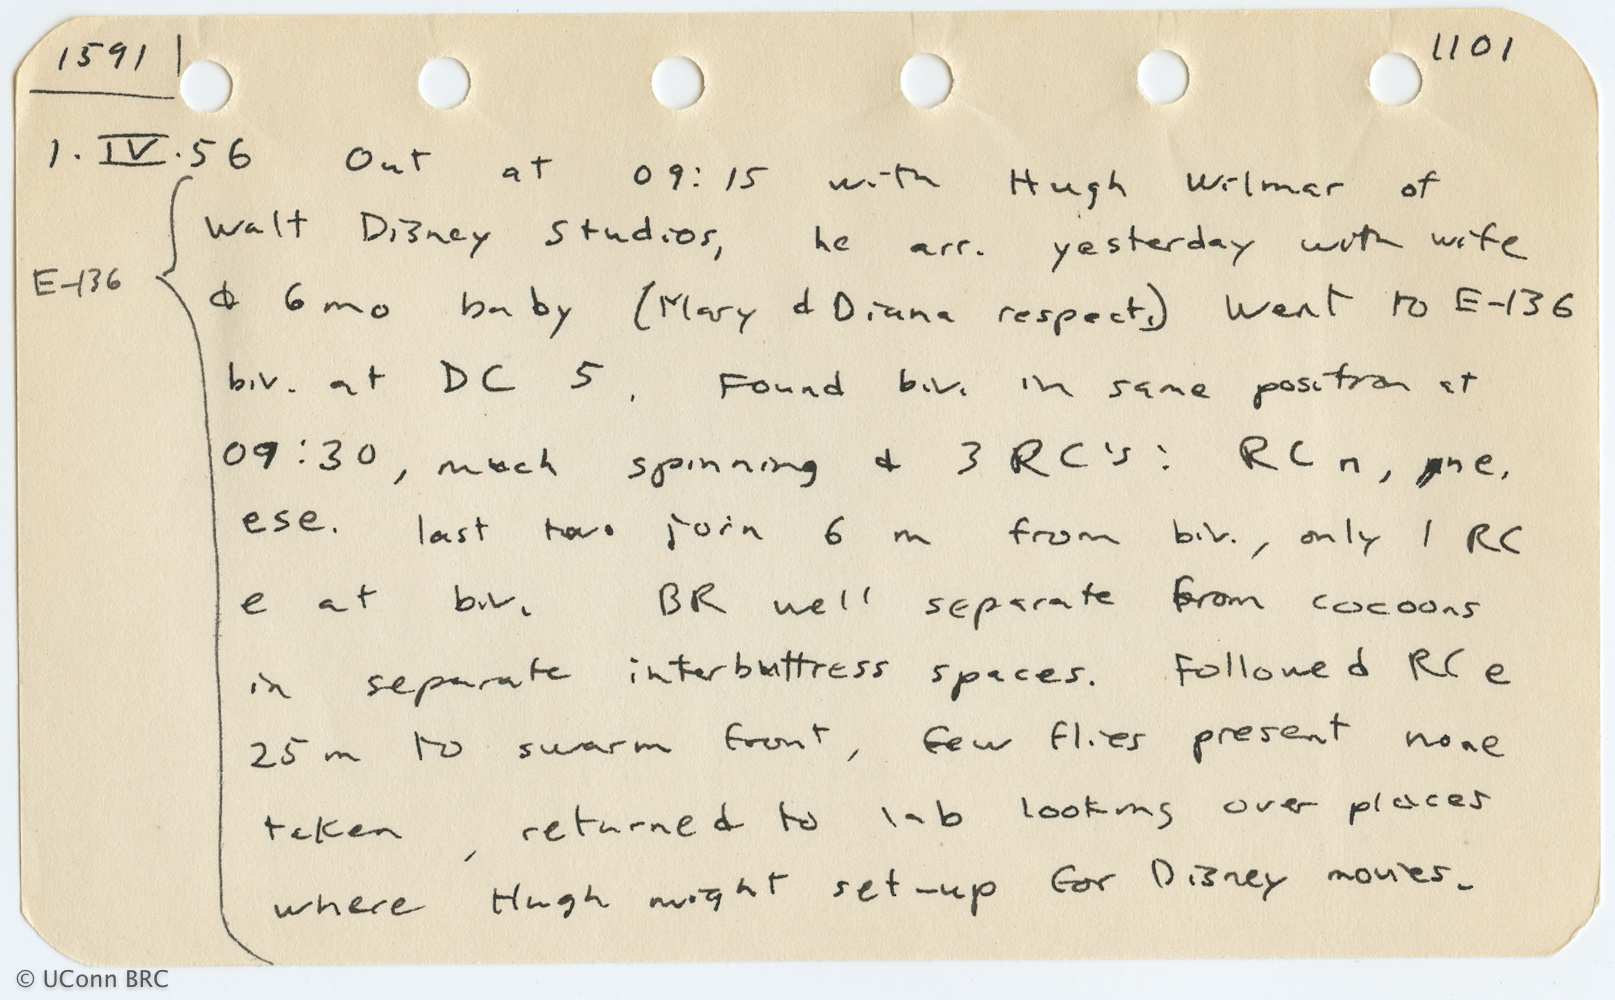 1591
1101
1. IV. 56 Out at 09:15 with Hugh Wilmar of
Walt Dizney Studios, he arr. yesterday with wife
E-136
& 6 mo baby (Mary & Diana respect.) Went to E-136
biv. at DC 5. Found biv. in same position at
09:30, much spinning & 3 RC's: RC n, ne,
ese. last two join 6 m from biv., only 1 RC
e at biv. BR well separate from cocoons
in separate interbuttress spaces. Followed RC e
25 m to swarm front, few flies present none
taken, returned to lab looking over places
where Hugh might set-up for Dizney movies.
© UConn BRC